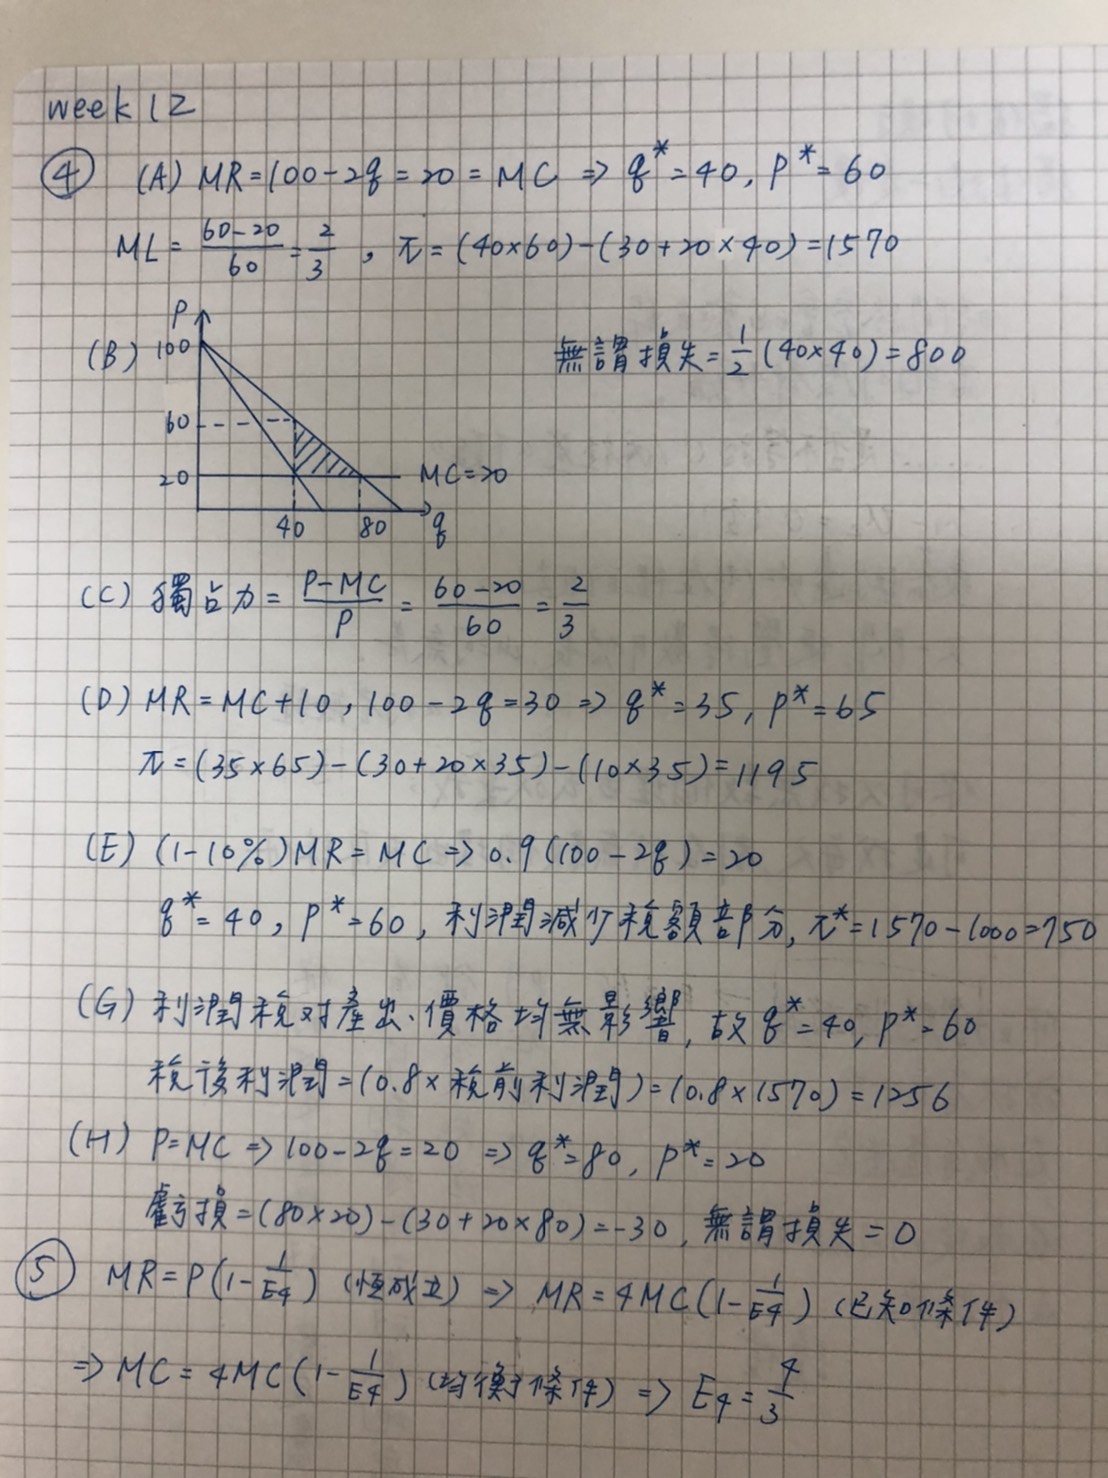 week 12
④ (A) MR=100-2q=20=MC ⇒ q*=40, p*=60
ML=(60-20)/60=2/3, π=(40×60)-(30+20×40)=1570
(B) P 100 60 20 40 80 q MC=20 無謂損失=1/2(40×40)=800
(C) 獨占力=(P-MC)/P=(60-20)/60=2/3
(D) MR=MC+10, 100-2q=30 ⇒ q*=35, p*=65
π=(35×65)-(30+20×35)-(10×35)=1195
(E) (1-10%)MR=MC ⇒ 0.9(100-2q)=20
q*=40, p*=60, 利潤減少稅額部分, π*=1570-1000=750
(G) 利潤稅对產出、價格均無影響, 故q*=40, p*=60
稅後利潤=(0.8×稅前利潤)=(0.8×1570)=1256
(H) P=MC ⇒ 100-2q=20 ⇒ q*=80, p*=20
虧損=(80×20)-(30+20×80)=-30, 無謂損失=0
⑤ MR=P(1-1/Ed) (恆成立) ⇒ MR=4MC(1-1/Ed) (已知條件)
⇒ MC=4MC(1-1/Ed) (均衡條件) ⇒ Ed=4/3